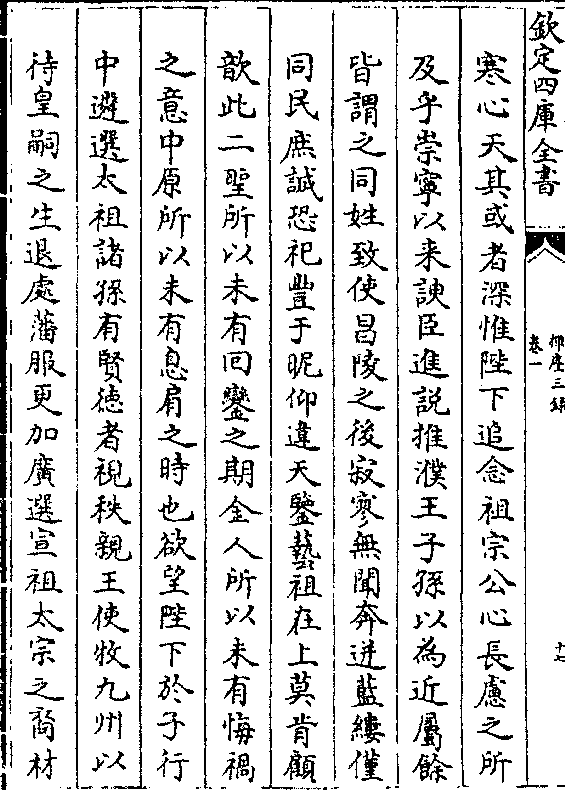 欽定四庫全書
揮麈三録
卷一
十七
寒心天其或者深惟陛下追念祖宗公心長慮之所
及乎崇寧以来諛臣進説推濮王子孫以為近屬餘
皆謂之同姓致使昌陵之後寂寥無聞奔迸藍縷僅
同民庶誠恐祀豐于昵仰違天鑒藝祖在上莫肯顧
歆此二聖所以未有回鑾之期金人所以未有悔禍
之意中原所以未有息肩之時也欲望陛下於子行
中遴選太祖諸孫有賢徳者視秩親王使牧九州以
待皇嗣之生退處藩服更加廣選宣祖太宗之裔材